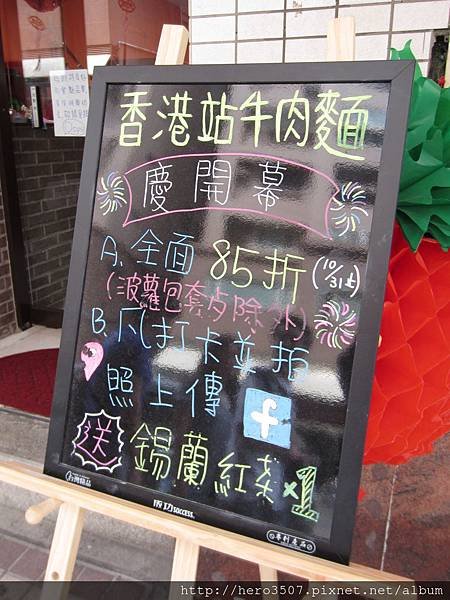 香港站牛肉麵
慶開幕
A. 全面 85折 (10/31止)
(菠蘿包套歺除外)
B. 凡打卡並拍
照上傳 f
送 錫蘭紅茶 x1
成功 SUCCESS
專利產品
http://hero3507.pixnet.net/album